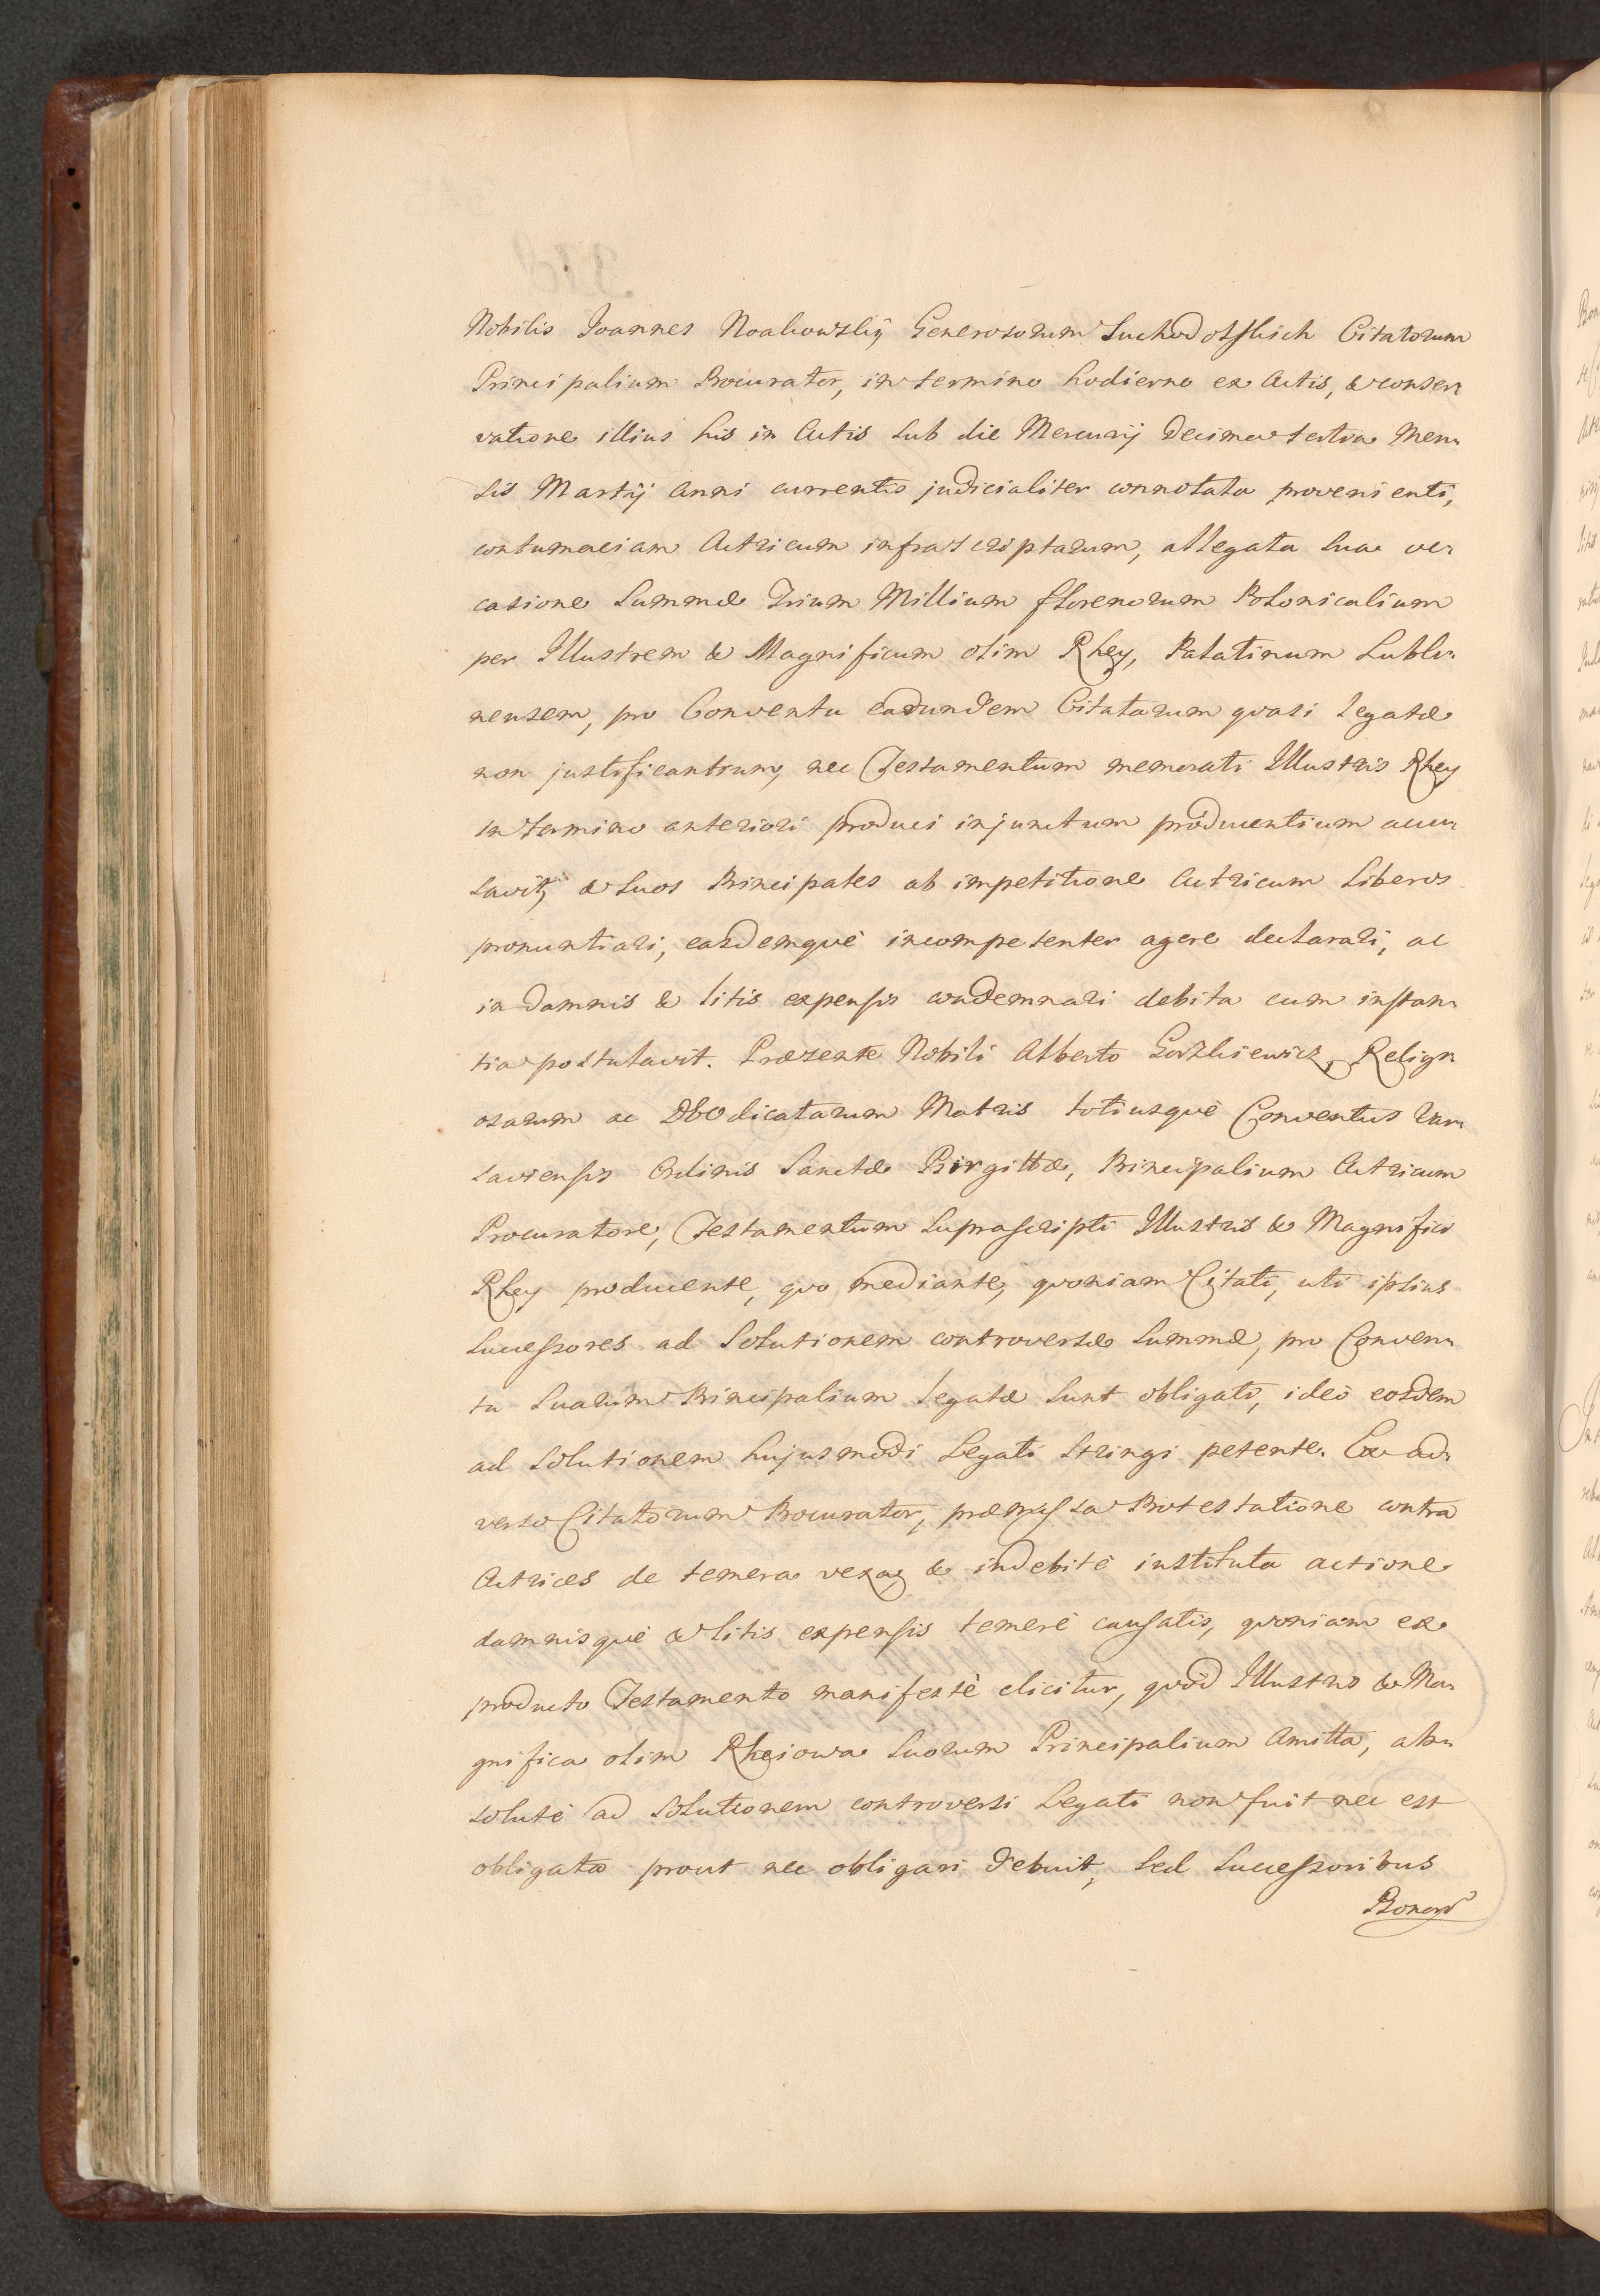 Nobilis Joannes Noakowskij Generosorum Suchodolskich Citatorum
Principalium Procurator, in termino hodierno ex Actis, & conser„
vatione illius his in Actis sub die Mercurij Decima tertia Men„
sis Martij Anni currentis judicialiter connotata provenienti,
contumaciam Actricum infrascriptarum, allegata sua ve„
catione Summæ Trium Millium florenorum Polonicalium
per Illustrem & Magnificum olim Rhey, Palatinum Lubli„
nensem, pro Conventu earundem Citatarum quasi legatæ
non justificantium, nec Testamentum memorati Illustris Rhey
in termino anteriori produci injunctum producentium accu„
savit, & suos Principales ab impetitione Actricum liberos
pronuntiari, easdemquè incompetenter agere declarari, ac
in damnis & litis expensis condemnari debita cum instan„
tia postulavit. Præsente Nobili Alberto Gorzkiewicz, Religi„
osarum ac DEO dicatarum Matris totiusquè Conventus Var„
saviensis Ordinis Sanctæ Birgittæ, Principalium Actricum
Procuratore, Testamentum suprascripti Illustris & Magnifici
Rhey producente, quo mediante, quoniam Citati, uti ipsius
Successores ad solutionem controversæ Summæ, pro Conven„
tu Suarum Principalium legatæ sunt obligati, ideò eosdem
ad solutionem hujusmodi Legati stringi petente. Ex ad„
verso Citatorum Procurator, præmissa Protestatione contra
Actrices de temera vexa, & indebitè instituta actione
damnisquè & litis expensis temerè causatis, quoniam ex
producto Testamento manifestè elicitur, quòd Illustris & Ma„
gnifica olim Rheiowa Suorum Principalium Amitta, ab„
solutè ad solutionem controversi Legati non fuit nec est
obligata prout nec obligari debuit, sed Successoribus
Bonor